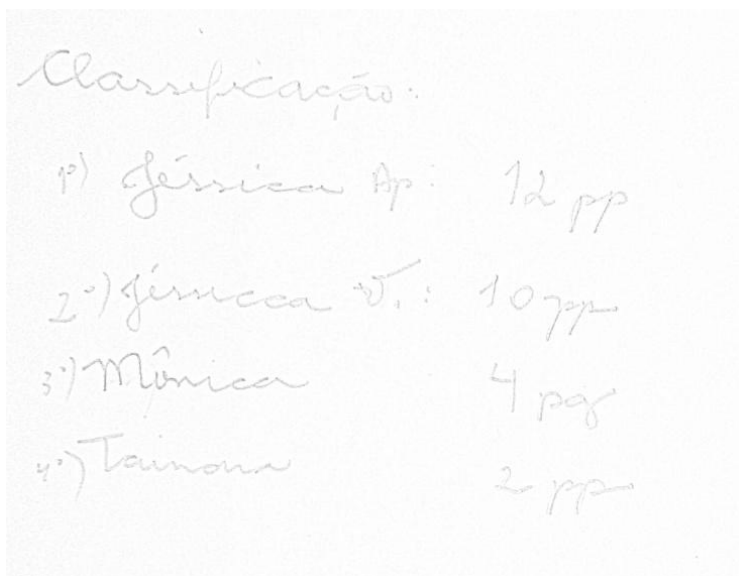 Classificação:
1º) Jéssica Ap: 12 pp
2º) Jéssicca V.: 10 pp
3º) Mônica 4 pg
4º) 2 pp